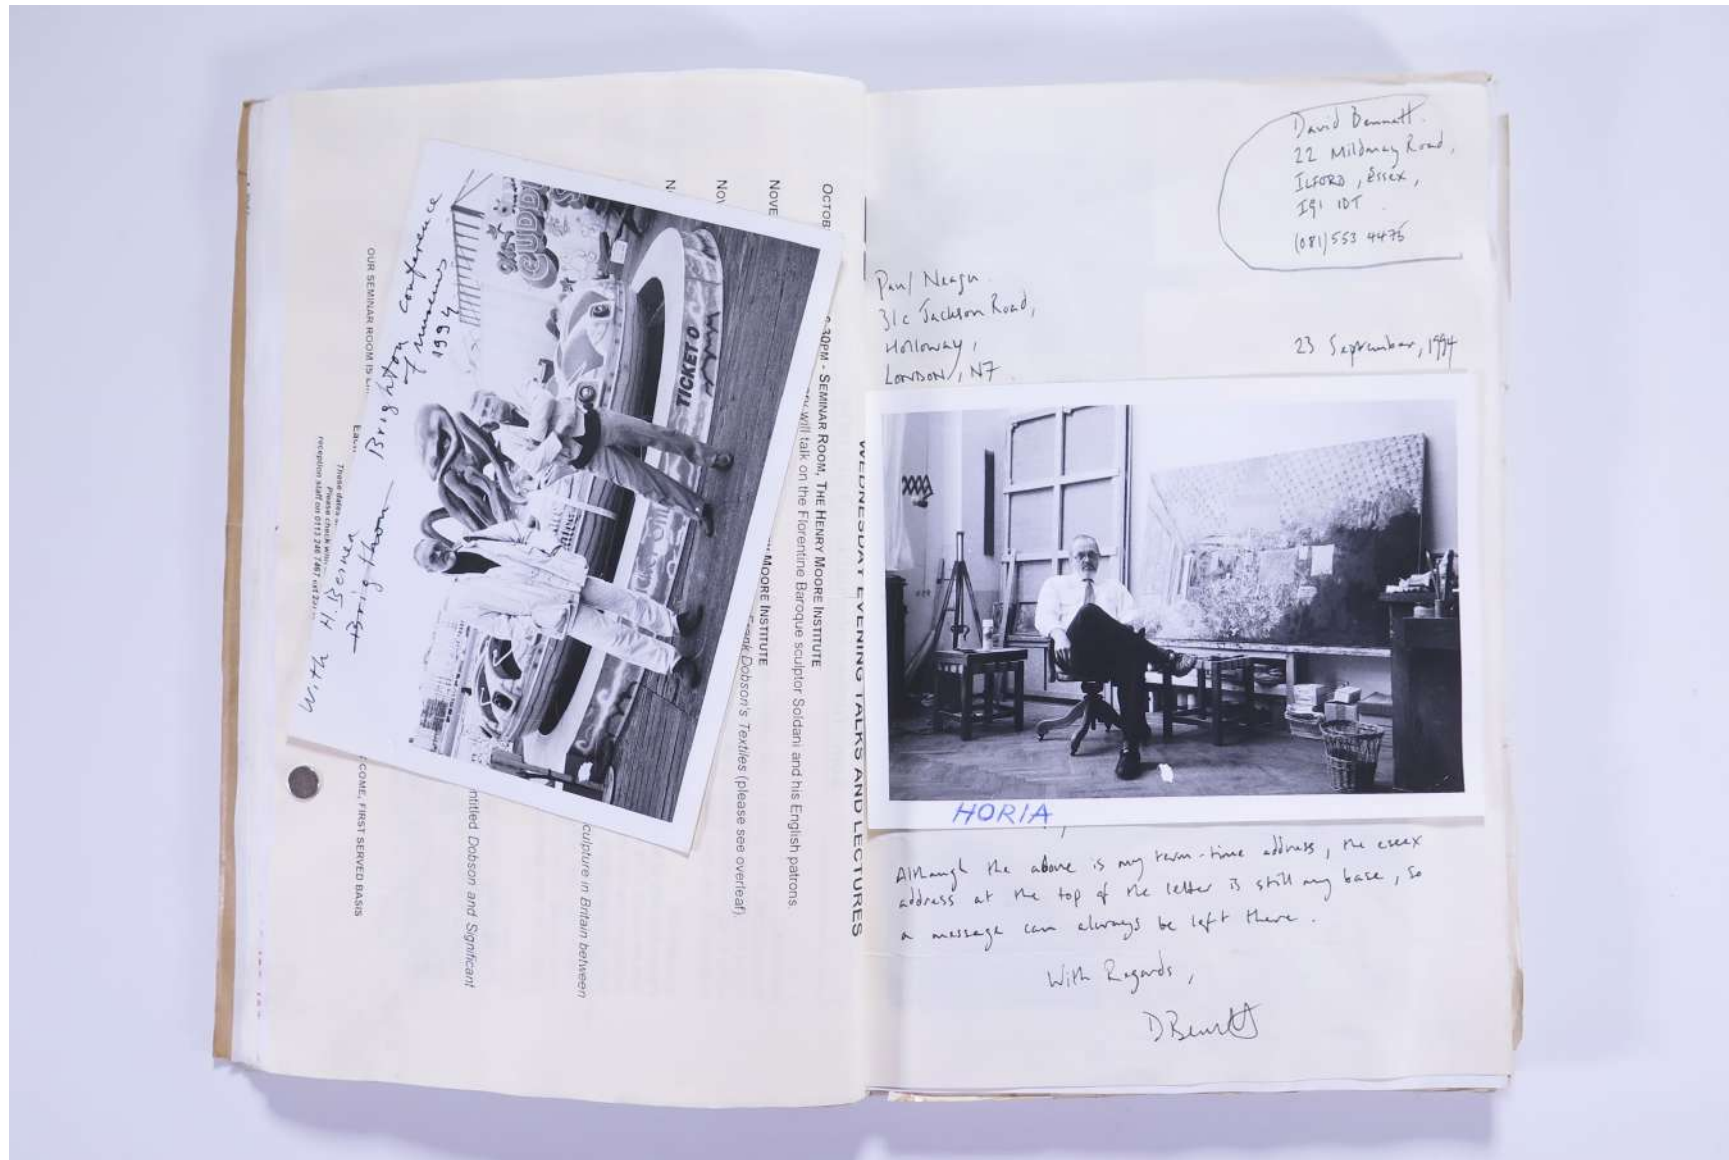 With H Bernea
Brighton — Brighton conference
of museums
1994
CUDDL
TICKET O
WEDNESDAY EVENING TALKS AND LECTURES
OCTOB
30PM - SEMINAR ROOM, THE HENRY MOORE INSTITUTE
will talk on the Florentine Baroque sculptor Soldani and his English patrons.
NOVE
MOORE INSTITUTE
Frank Dobson's Textiles (please see overleaf).
NOV
N
culpture in Britain between
ntitled Dobson and Significant
OUR SEMINAR ROOM IS
COME, FIRST SERVED BASIS
These dates
Please check with
reception staff on 0113 246 7467
David Bennett.
22 Mildmay Road,
ILFORD, Essex,
IG1 1DT
(081) 553 4475
Paul Neagu
31c Jackson Road,
Holloway,
LONDON, N7
23 September, 1994
HORIA
Although the above is my term-time address, the essex
address at the top of the letter is still my base, so
a message can always be left there.
With Regards,
D Bennett